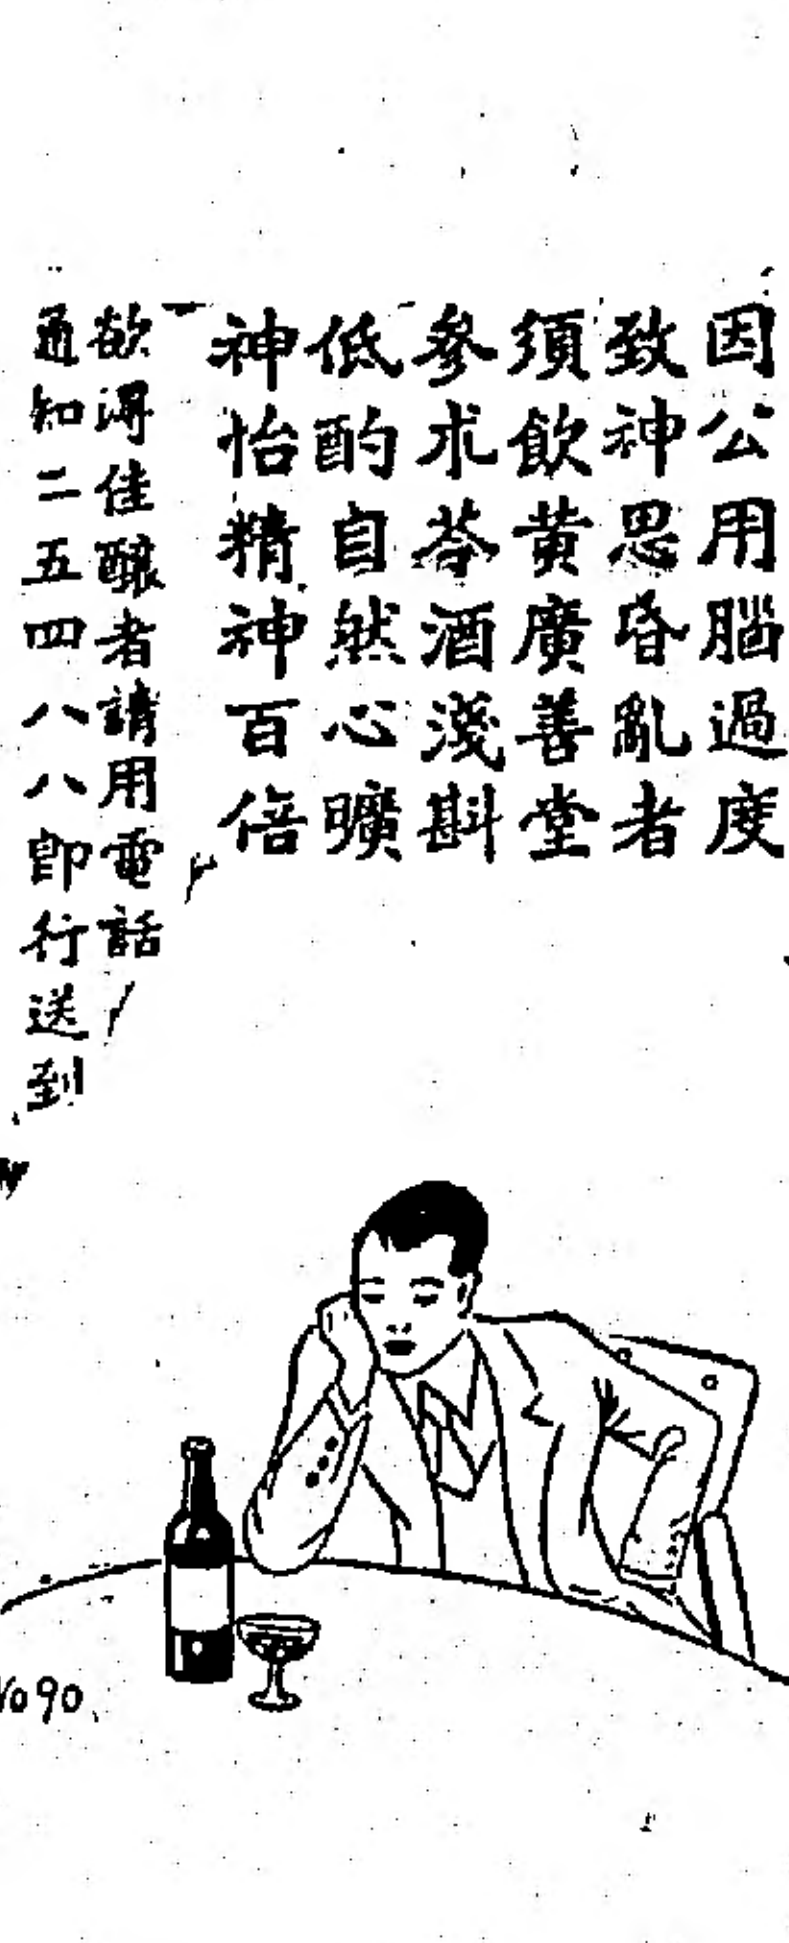 因公用腦過度
致神思昏亂者
須飲黃廣善堂
參朮苓酒淺斟
低酌自然心曠
神怡精神百倍
欲得佳釀者請用電話
通知二五四八八即行送到
No 90